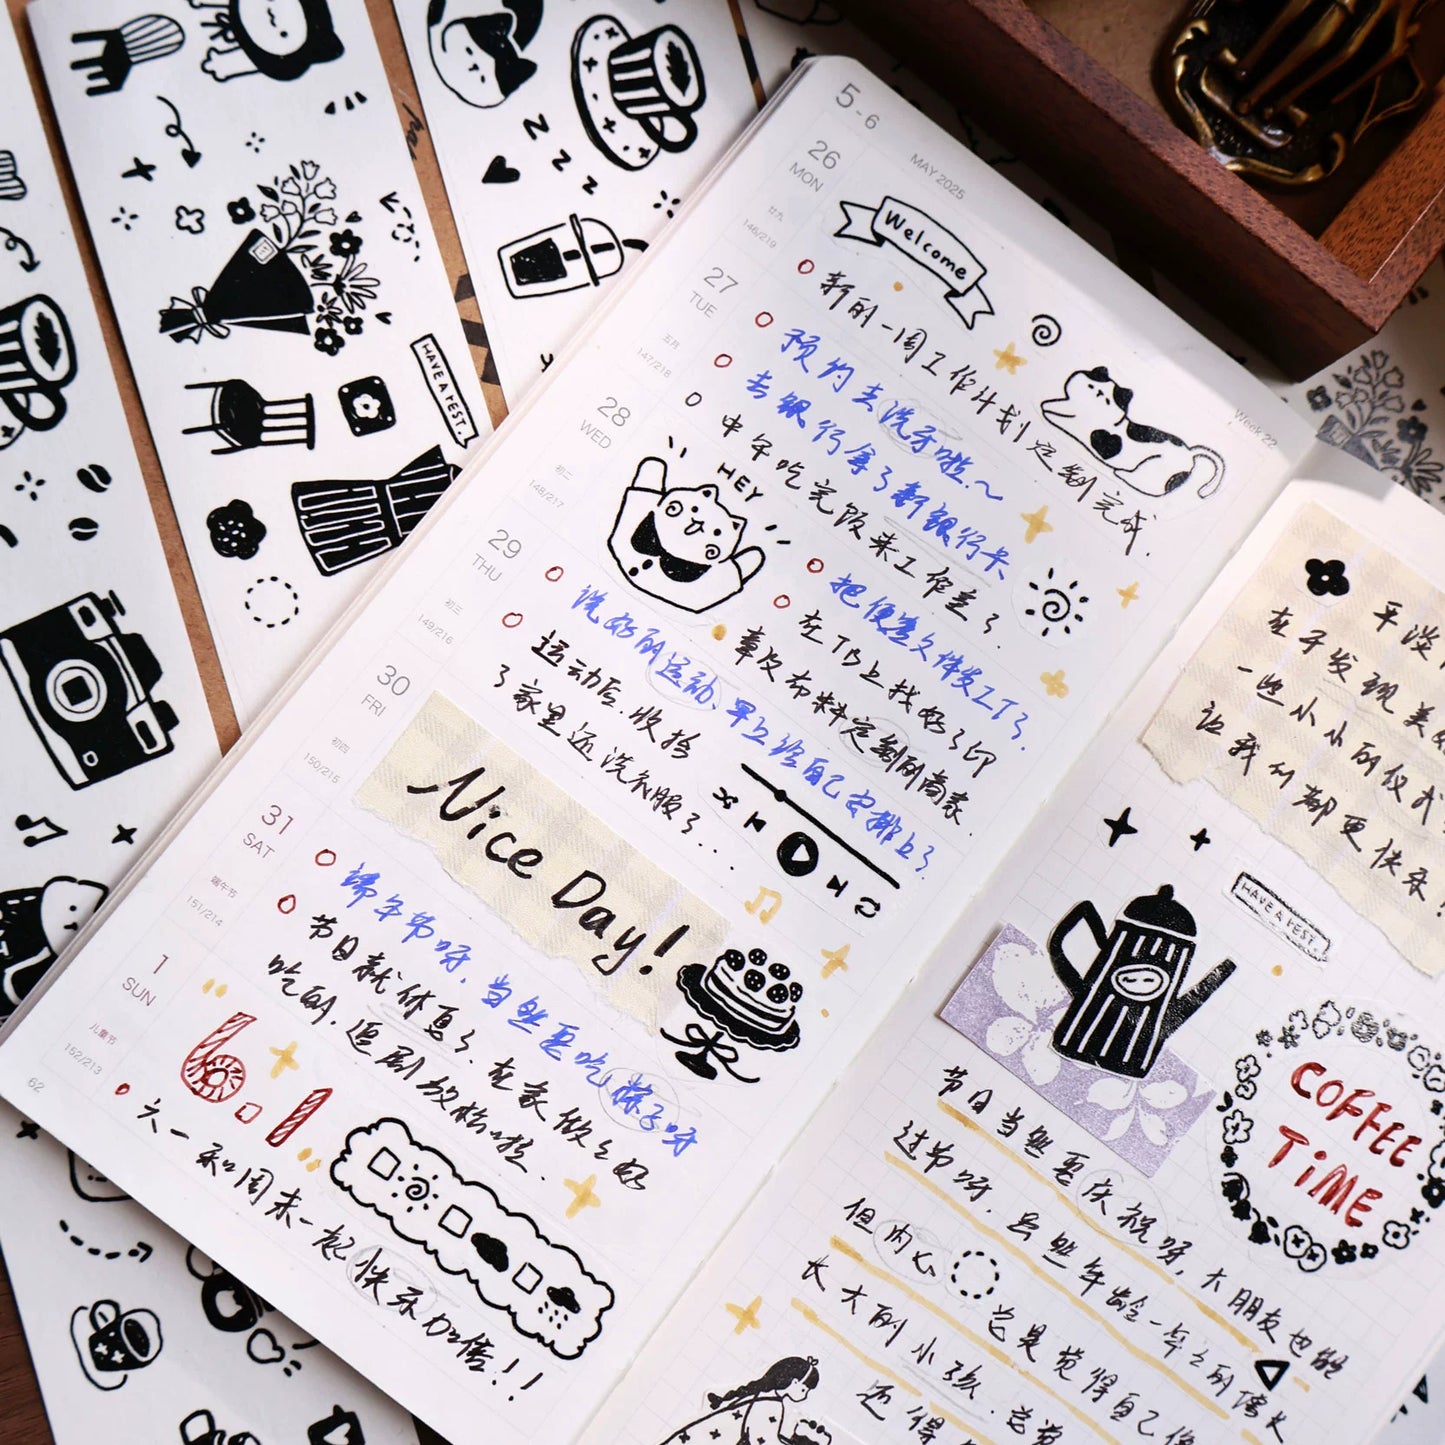 5-6
MAY 2025
Week 22
26
MON
廿九
146/219
Welcome
新的一周工作计划定制完成.
27
TUE
五月
147/218
预约去洗牙啦.~
去银行拿了新银行卡
中午吃完饭来工作室了.
28
WED
初二
148/217
HEY
把便签文件发工厂了.
在TB上找好了印
章及布料定制的商家.
29
THU
初三
149/216
洗好的运动、早立给自己安排上了
运动后.收拾
了家里还洗衣服了...
30
FRI
初四
150/215
Nice Day!
31
SAT
端午节
151/214
端午节呀.当然要吃粽子呀
节日就休息了.在家做点好
吃的.追剧放松啦.
1
SUN
儿童节
152/213
6.1
六一和周末一起快乐加倍!!
62
平淡
在于发现美
一些小小的仪式
让我们都更快乐!
HAVE A REST.
COFFEE
TiME
节日当然要庆祝呀,大朋友也能
过节呀.虽然年龄一年年的增长
但内心总是觉得自己像
长大的小孩.总觉
还得
HAVE A REST.
Z Z Z Z